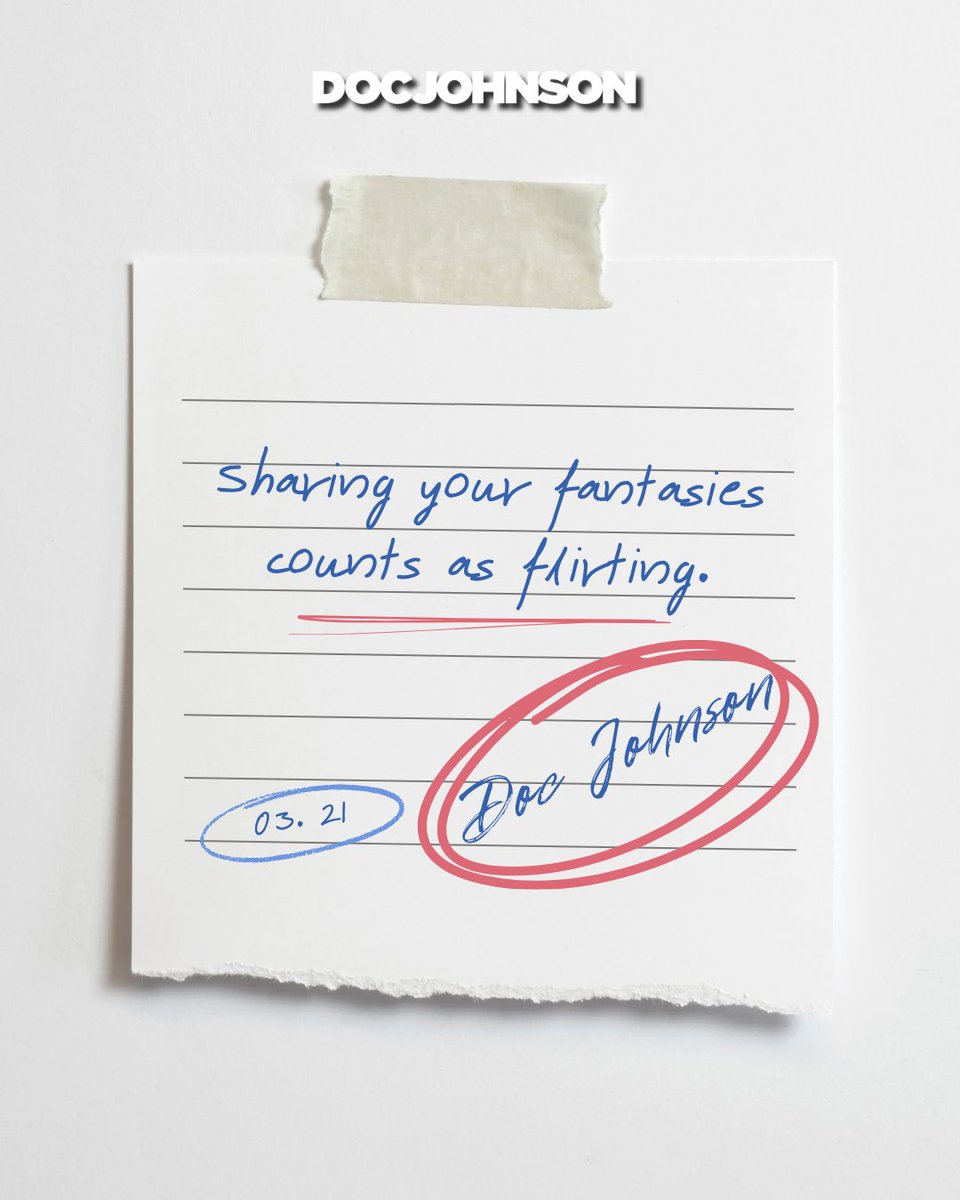 DOCJOHNSON
sharing your fantasies
counts as flirting.
Doc Johnson
03. 21